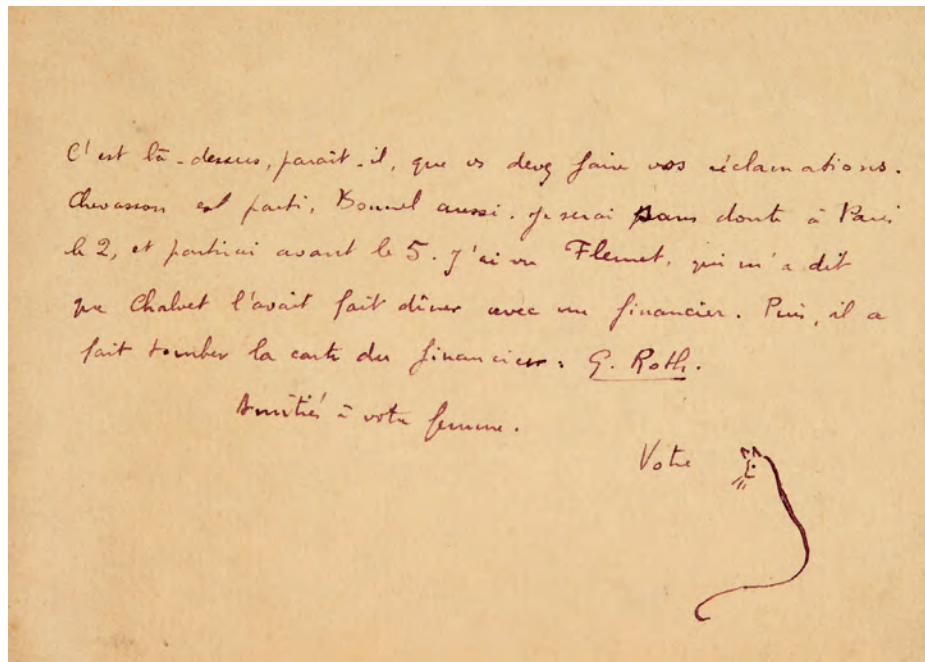 C'est là-dessus, paraît-il, que vs devez faire vos réclamations.
Chevasson est parti, Bonnel aussi. Je serai sans doute à Paris
le 2, et partirai avant le 5. J'ai vu Flemet, qui m'a dit
que Chalvet l'avait fait dîner avec un financier. Puis, il a
fait tomber la carte du financier : G. Roth.
Amitiés à votre femme.
Votre